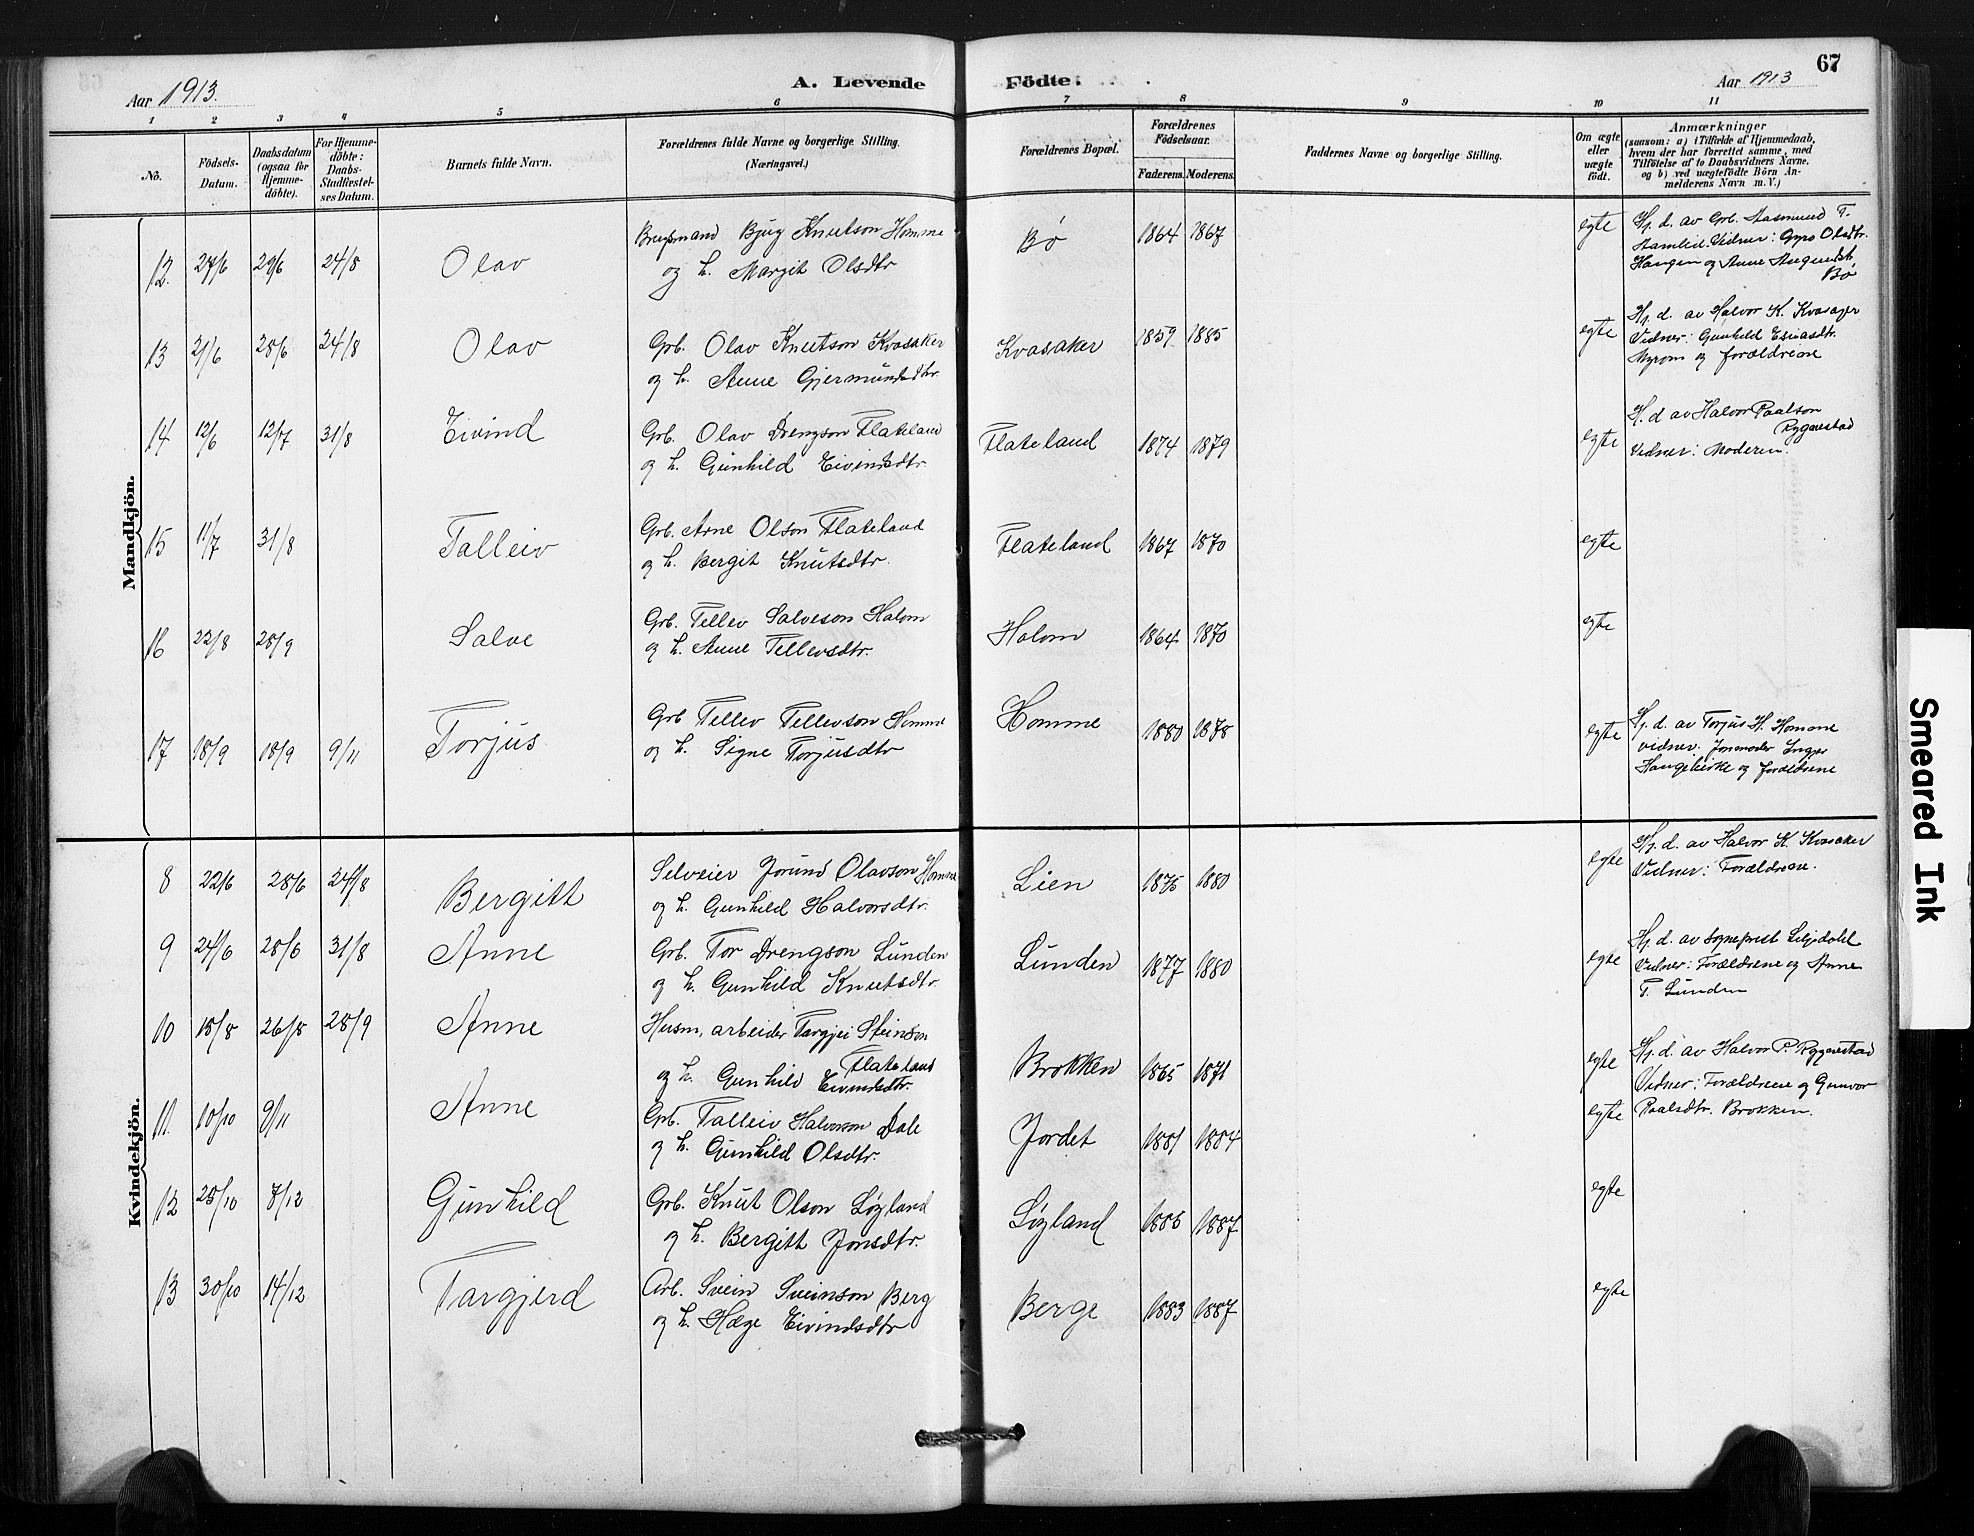 67
Aar 1913.
A. Levende Födte.
Aar 1913
1 2 3 4 5 6 7 8 9 10 11
No.
Födsels-Datum.
Daabsdatum (ogsaa for Hjemme-döbte).
For Hjemme-döbte: Daabs-Stadfæstel-ses Datum.
Barnets fulde Navn.
Forældrenes fulde Navne og borgerlige Stilling.
(Næringsvei.)
Forældrenes Bopæl.
Forældrenes Födselsaar.
Faderens. Moderens.
Faddernes Navne og borgerlige Stilling.
Om ægte eller uægte födt.
Anmærkninger
(saasom: a) i Tilfælde af Hjemmedaab, hvem der har forrettet samme, med Tilföielse af to Daabsvidners Navne, og b) ved uægtefödte Börn An-melderens Navn m.V.)
Mandkjön.
12. 27/6 29/6 24/8 Olav
Brugsmand Bjug Knutson Homme
og h. Margit Olsdtr
Bø 1864 1867 egte
Hj. d. av Grb. Aasmund T.
Vidner: Gyro Olsdtr.
Haugen og Anne
Bø
13 21/6 28/6 24/8 Olav
Grb. Olav Knutson Kvasaker
og h. Anne Gjermundsdtr.
Kvasaker 1859 1885 egte
Hj. d. av Halvor K. Kvasager
Vidner: Gunhild Esiasdtr.
Myrom og forældrene
14 12/6 12/7 31/8 Eivind
Grb. Olav Drengson Flateland
og h. Gunhild Eivindsdtr.
Flateland 1874 1879 egte
H. d av Halvor Paalson
Rygnestad
Vidner: Moderen.
15 11/7 31/8 Talleiv
Grb. Arne Olson Flateland
og h. Bergit Knutsdtr.
Flateland 1867 1870 egte
16 22/8 28/9 Salve
Grb. Tellev Salveson Halom
og h. Anne Tellevsdtr.
Holom 1864 1870 egte
17 18/9 18/9 9/11 Torjus
Grb Tellev Tellevson Homme
og h. Signe Torjusdtr
Homme 1880 1878 egte
Hj. d. av Torjus H. Homme
vidner: Jormoder Inger
Haugekirke og forældrene
Kvindekjön.
8 22/6 28/6 24/8 Bergitt
Selveier Jorund Olavson Homme
og h. Gunhild Halvorsdtr.
Lien 1875 1880 egte
Hj. d. av Halvor K. Kvasaker
Vidner: Forældrene.
9 24/6 28/6 31/8 Anne
Grb. Tor Drengson Lunden
og h. Gunhild Knutsdtr.
Lunden 1877 1880 egte
Hj. d. av sogneprest Liljedahl
Vidner: Forældrene og Anne
T. Lunden
10 15/8 26/8 28/9 Anne
Husm, arbeider Targjei Steinson
Flateland
og h. Gunhild Eivindsdtr.
Brokken 1865 1871 egte
Hj. d. av Halvor P. Rygnestad
Vidner: Forældrene og Gunvor
Paalsdtr. Brokken.
11. 10/10 9/11 Anne
Grb. Talleiv Halvorson Dale
og h. Gunhild Olsdtr.
Jordet 1881 1884 egte
12 25/10 7/12 Gunhild
Grb. Knut Olson Løgland
og h. Bergitt Jonsdtr.
Løgland 1885 1887 egte
13 30/10 14/12 Targjerd
Arb. Svein Sveinson Berg
og h. Hæge Eivindsdtr
Berge 1883 1887 egte
Smeared Ink